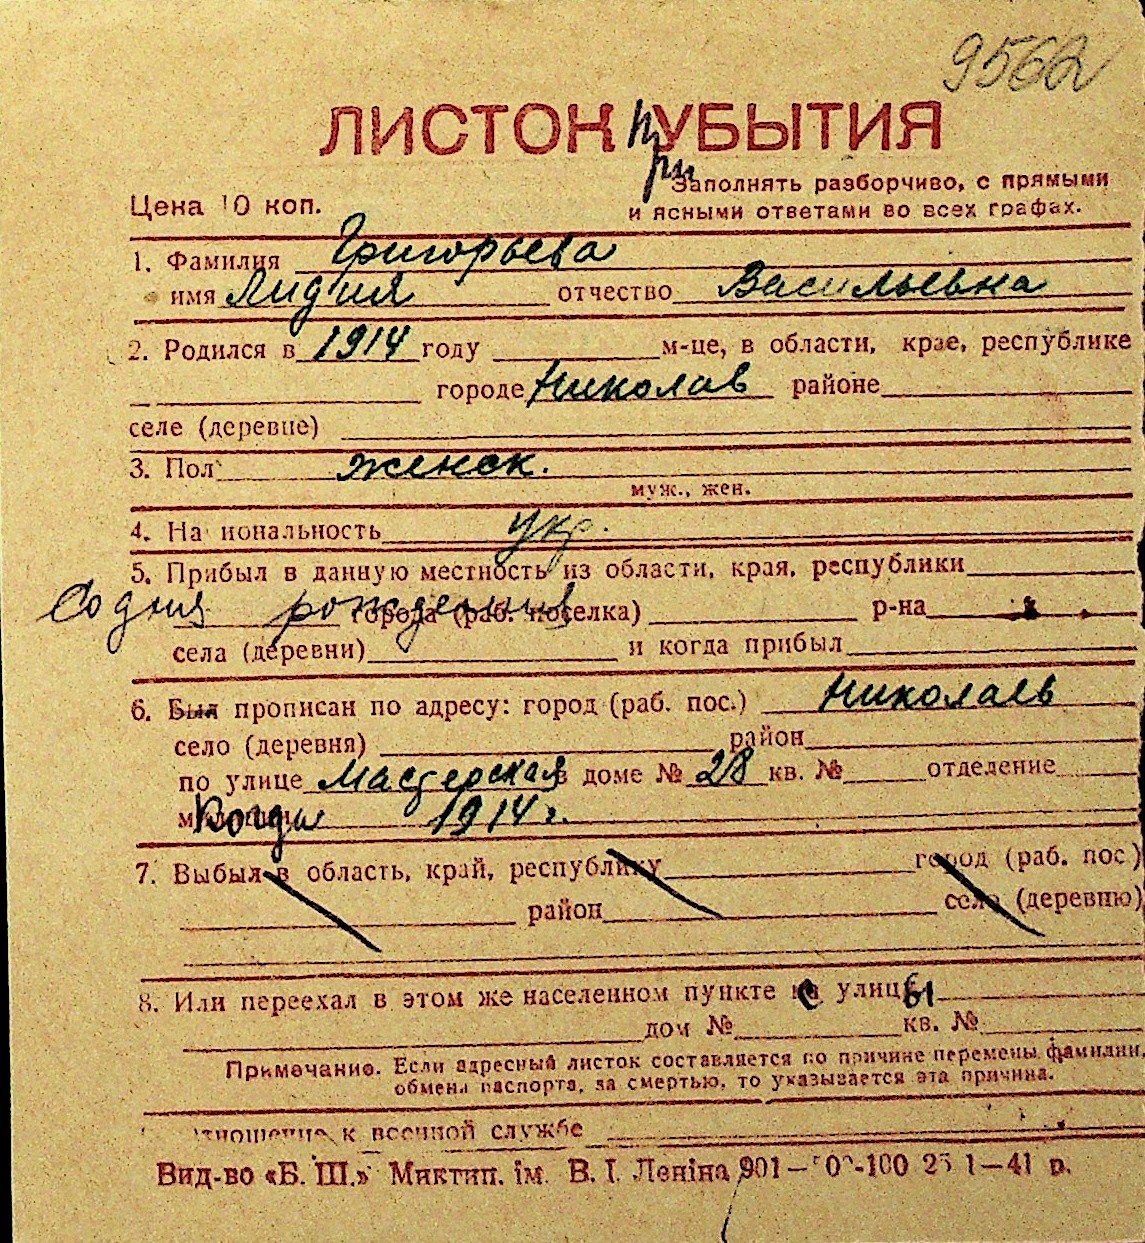 9562
ЛИСТОК При УБЫТИЯ
Цена 10 коп.
Заполнять разборчиво, с прямыми
и ясными ответами во всех графах.
1. Фамилия Григорьева
имя Лидия отчество Васильевна
2. Родился в 1914 году м-це, в области, крае, республике
городе Николаев районе
селе (деревне)
3. Пол женск.
муж., жен.
4. На иональность укр.
5. Прибыл в данную местность из области, края, республики
Со дня рождения города (раб. поселка) р-на
села (деревни) и когда прибыл
6. Был прописан по адресу: город (раб. пос.) Николаев
село (деревня) район
по улице Мастерская в доме № 28 кв. № отделение
Когда 1914 г.
7. Выбыл в область, край, республику город (раб. пос)
район село (деревню)
8. Или переехал в этом же населенном пункте с улицы
дом № кв. №
Примечание. Если адресный листок составляется по причине перемены фамилии,
обмена паспорта, за смертью, то указывается эта причина.
тношение к военной службе
Вид-во «Б. Ш.» Миктип. ім. В. І. Леніна 901— 1—41 р.